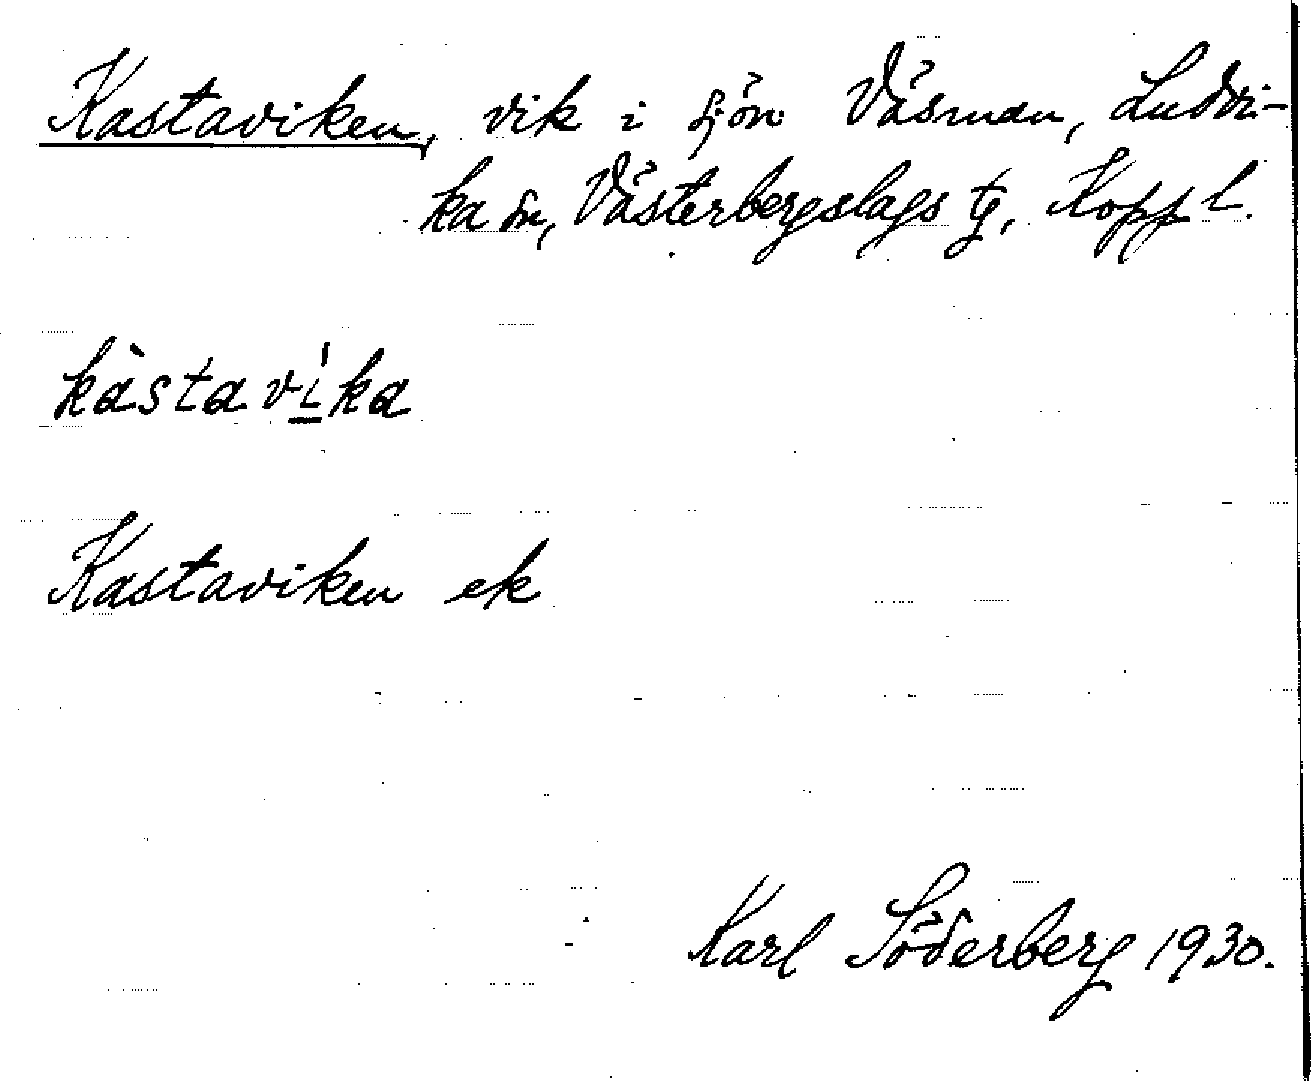 Kastaviken, vik i sjön Väsman, Ludvi-
ka sn, Västerbergslags tg, Kopp l.
kàstaví̱ka
Kastaviken ek
Karl Söderberg 1930.